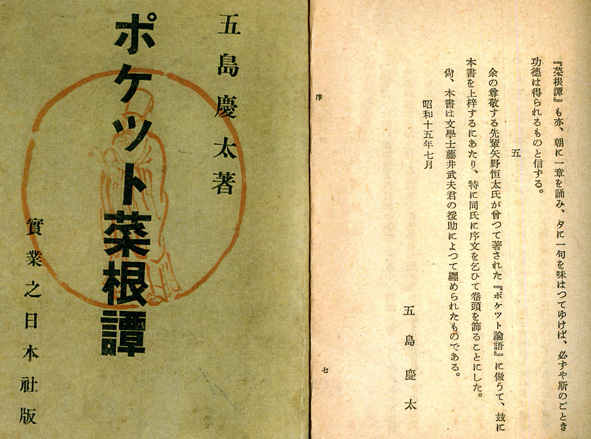 五島慶太著
ポケツト菜根譚
實業之日本社版
『菜根譚』も亦、朝に一章を誦み、夕に一句を味はつてゆけば、必ずや斯のごとき
功德は得られるものと信ずる。
五
余の尊敬する先輩矢野恒太氏が曾つて著された『ポケツト論語』に倣うて、玆に
本書を上梓するにあたり、特に同氏に序文を乞ひて卷頭を飾ることにした。
尙、本書は文學士藤井武夫君の援助によつて纏められたものである。
昭和十五年七月
五島慶太
序
七